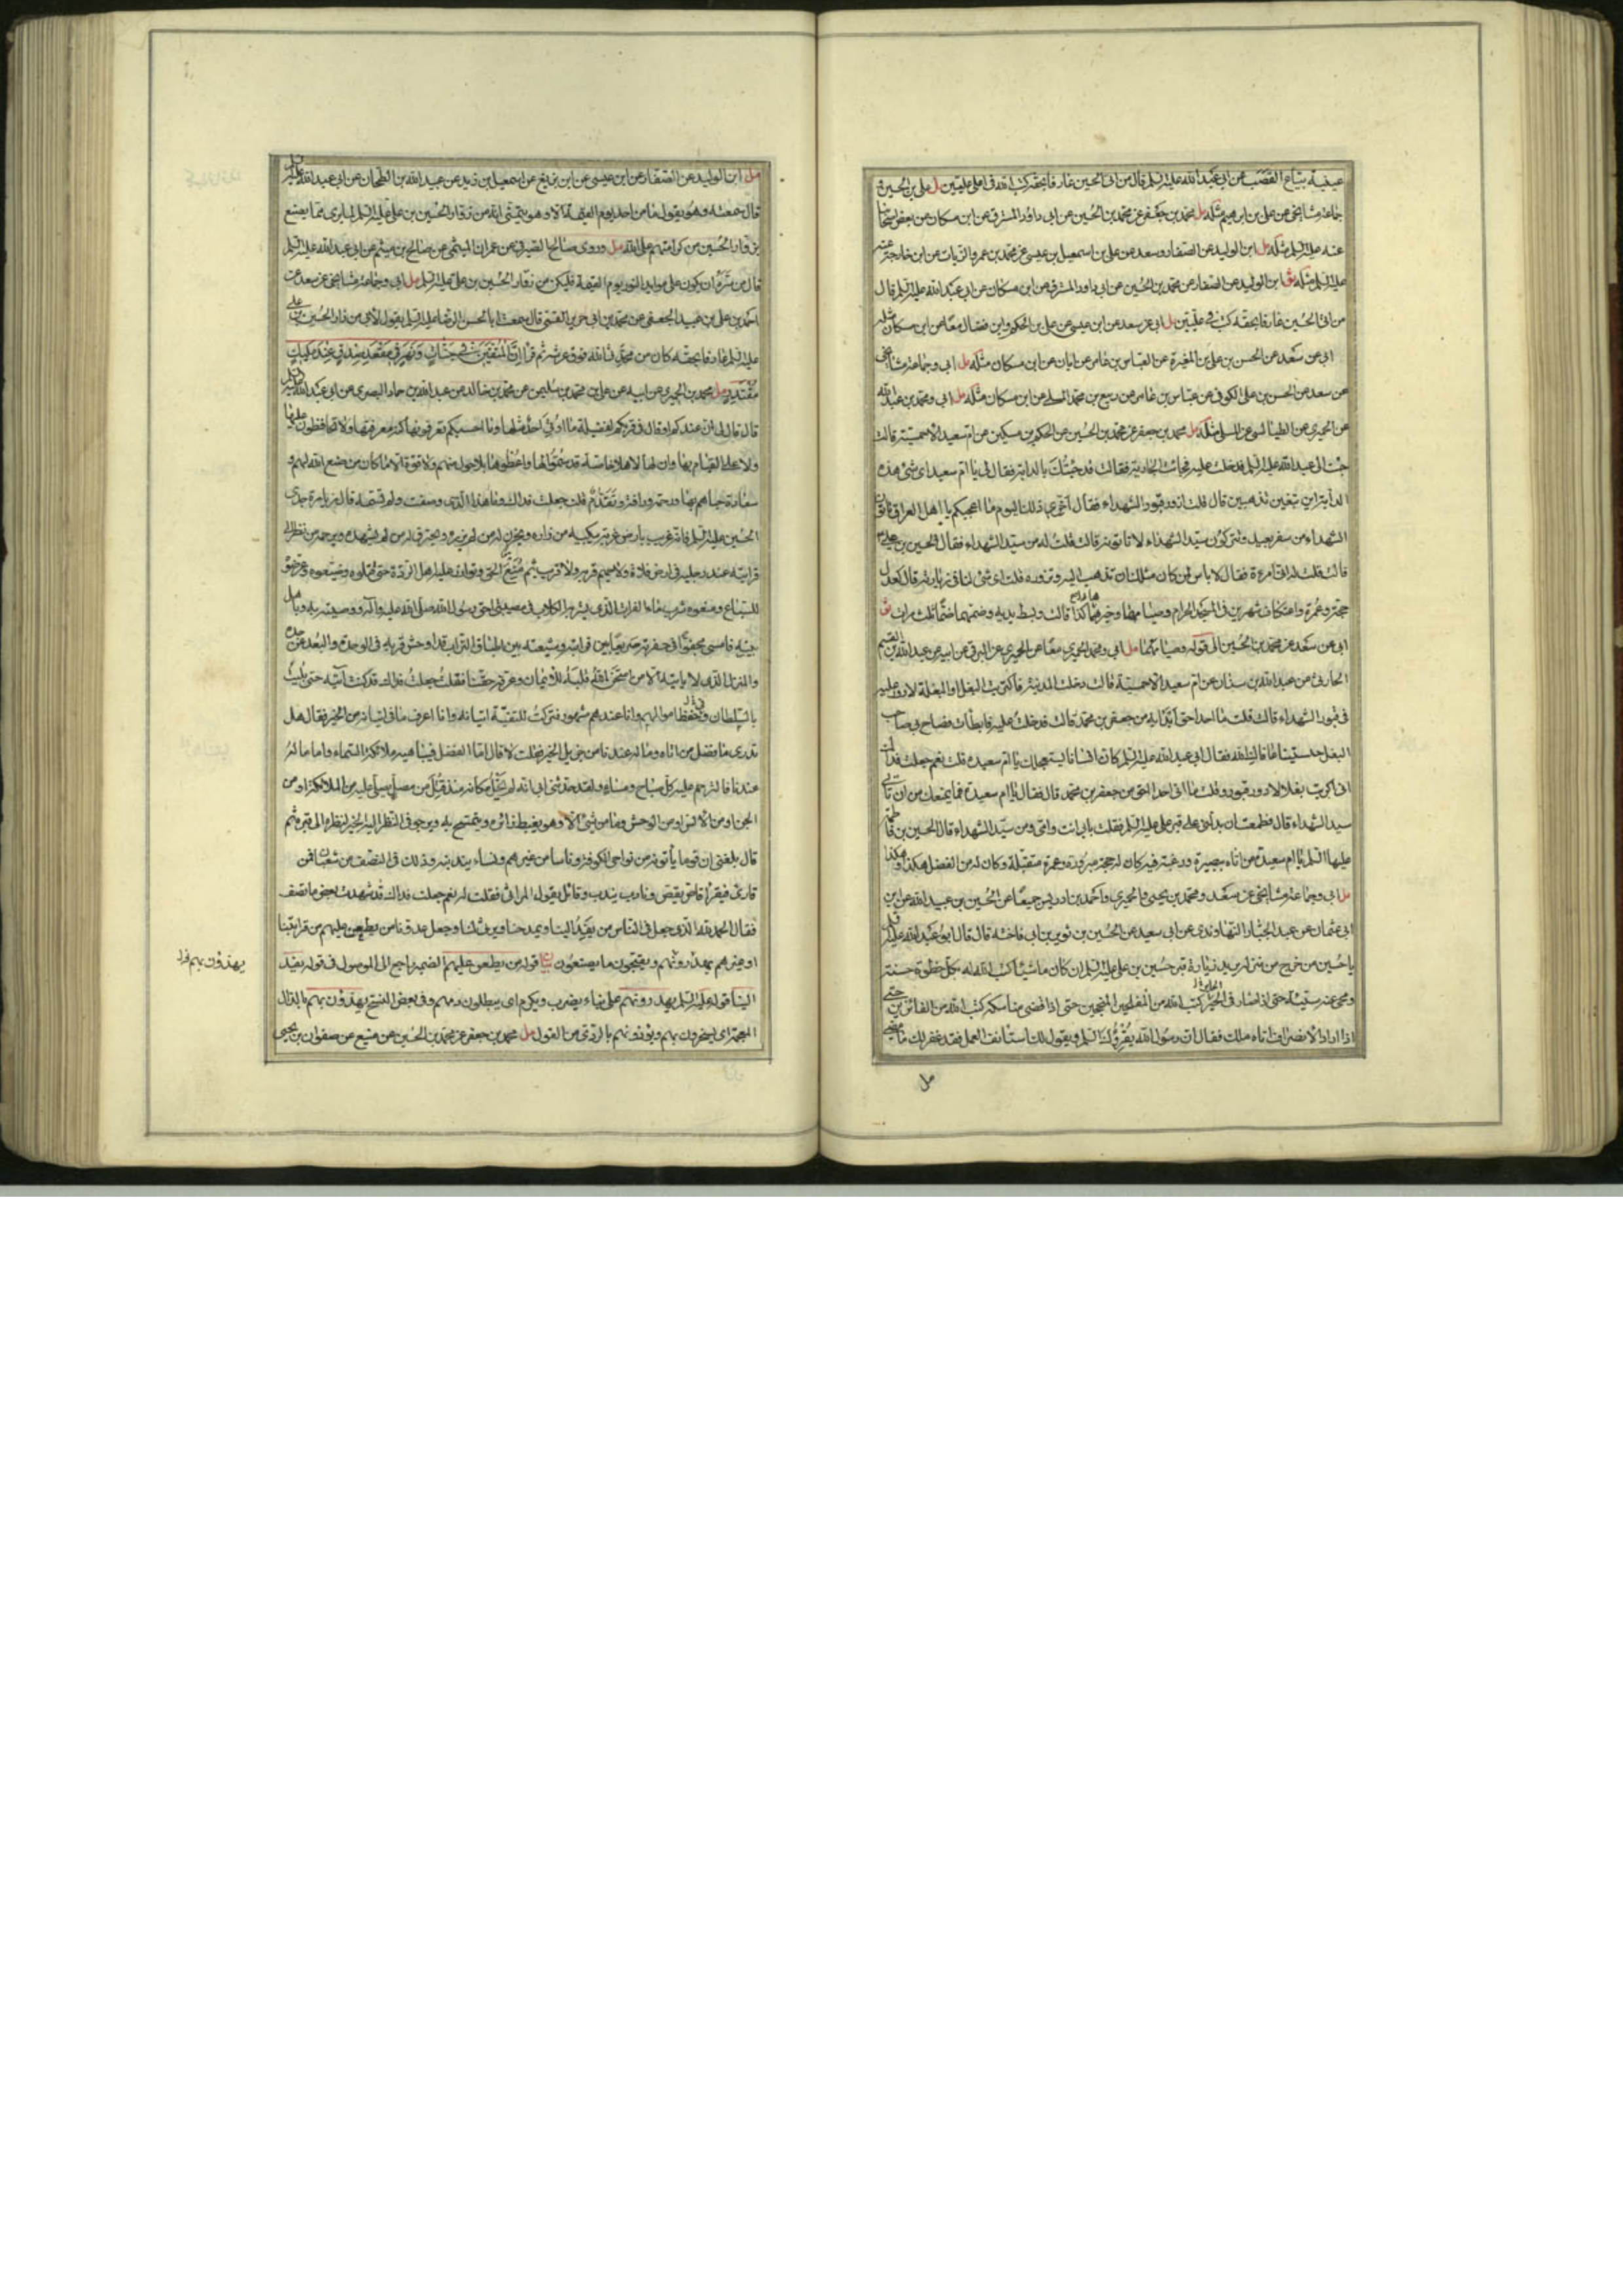 عيينة بياع القصب عن ابي عبد الله عليه السلم قال من اتى الحسين عارفا بحقه كتب الله في اعلى عليين مل علي بن الحسين و
جماعة مشايخي عن علي بن ابرهيم مثله مل محمد بن جعفر عن محمد بن الحسين عن ابي داود المسترق عن ابن مسكان عن بعض اصحابنا
عنه عليه السلم مثله مل ابن الوليد عن الصفار وسعد عن علي بن اسمعيل بن عيسى عن محمد بن عمرو الزيات عن ابن خارجة عنه
عليه السلم مثله ثو ابن الوليد عن الصفار عن محمد بن الحسين عن ابي داود المسترق عن ابن مسكان عن ابي عبد الله عليه السلم قال
من اتى الحسين عارفا بحقه كتب في عليين مل ابي عن سعد عن ابن عيسى عن علي بن الحكم وابن فضال معا عن ابن مسكان مثله
ابي عن سعد عن الحسن بن علي بن المغيرة عن العباس بن عامر عن ابان عن ابن مسكان مثله مل ابي وجماعة مشايخي
عن سعد عن الحسن بن علي الكوفي عن عباس بن عامر عن ربيع بن محمد المسلي عن ابن مسكان مثله مل ابي ومحمد بن عبد الله
عن الحميري عن الطيالسي عن المسلي مثله مل محمد بن جعفر عن محمد بن الحسين عن الحكم بن مسكين عن ام سعيد الاحمسية قالت
جئت الى ابي عبد الله عليه السلم فدخلت عليه فجاءت الجارية فقالت قد جئتك بالدابة فقال لي يا ام سعيد اي شئ هذه
الدابة اين تبغين تذهبين قال قلت ازور قبور الشهداء فقال اخري ذلك اليوم ما اعجبكم يا اهل العراق تاتون
الشهداء من سفر بعيد وتتركون سيد الشهداء لا تاتونه قالت قلت له من سيد الشهداء فقال الحسين بن علي
قالت قلت له اني امرءة فقال لا باس لمن كان مثلك ان تذهب اليه وتزوره قلت اي شئ لنا في زيارته قال كعدل
حجة وعمرة واعتكاف شهرين في المسجد الحرام وصيامها وخير هما كذا قالت وبسط يديه وضمهما ضما ثلث مرات ثو
ابي عن سعد عن محمد بن الحسين الى قوله وصيامهما مل ابي ومحمد الحميري معا عن الحميري عن البرقي عن ابيه عن عبد الله بن القسم
الحارثي عن عبد الله بن سنان عن ام سعيد الاحمسية قالت دخلت المدينة فاكتريت البغل او البغلة لادور عليه
في قبور الشهداء قالت قلت ما احد احق ابدا به من جعفر بن محمد قالت فدخلت عليه فابطات فصاح بي صاحب
البغل حبستينا عافاك الله فقال لي ابو عبد الله عليه السلم كان انسانا يستعجلك يا ام سعيدة قلت نعم جعلت فداك
اني اكتريت بغلا لادور قبور وقلت ما اتي احدا احق من جعفر بن محمد قال فقال يا ام سعيدة فما يمنعك من ان تاتي
سيد الشهداء قال فطمعت ان يدلني على قبر علي عليه السلم فقلت بابي انت وامي ومن سيد الشهداء قال الحسين بن فاطمة
عليها السلم يا ام سعيدة من اتاه ببصيرة ورغبة فيه كان له حجة مبرورة وعمرة متقبلة وكان له من الفضل هكذا وهكذا
مل ابي وجماعة مشايخي عن سعد ومحمد بن يحيى والحميري واحمد بن ادريس جميعا عن الحسين بن عبيد الله عن ابن
ابي عثمان عن عبد الجبار النهاوندي عن ابي سعيد عن الحسين بن ثوير بن ابي فاختة قال قال ابو عبد الله عليه السلم
يا حسين من خرج من منزله يريد زيارة قبر حسين بن علي عليه السلم ان كان ماشيا كتب الله له بكل خطوة حسنة
ومحى عنه سيئة حتى اذا صار في الحير كتبه الله من المفلحين المنجحين حتى اذا قضى مناسكه كتبه الله من الفائزين حتى
اذا اراد الانصراف اتاه ملك فقال ان رسول الله يقرؤك السلم ويقول لك استأنف العمل فقد غفر لك ما مضى
مل
مل ابن الوليد عن الصفار عن ابن عيسى عن ابن بزيع عن اسمعيل بن زيد عن عبد الله بن الطحان عن ابي عبد الله عليه السلم
قال سمعته وهو يقول ما من احد يوم القيمة الا وهو يتمنى انه من زوار الحسين بن علي عليه السلم لما يرى مما يصنع
بزوار الحسين من كرامتهم على الله مل وروى صالح الصيرفي عن عمران الميثمي عن صالح بن ميثم عن ابي عبد الله عليه السلم
قال من سره ان يكون على موايد النور يوم القيمة فليكن من زوار الحسين بن علي عليه السلم مل ابي وجماعة مشايخي عن سعد عن
احمد بن علي بن عبيد الجعفي عن محمد بن ابي جرير القمي قال سمعت ابا الحسن الرضا عليه السلم يقول لابي من زار الحسين بن علي
عليه السلم عارفا بحقه كان من محدثي الله فوق عرشه ثم قرأ ان المتقين في جنات ونهر في مقعد صدق عند مليك
مقتدر مل محمد بن الحميري عن ابيه عن علي بن محمد بن سليمن عن محمد بن خالد عن عبد الله بن حماد البصري عن ابي عبد الله عليه السلم
قال قال لي ان عندكم او قال في قربكم لفضيلة ما اوتي احد مثلها وما احسبكم تعرفونها كنه معرفتها ولا تحافظون عليها
ولا على القيام بها وان لها لاهلا خاصة قد سموا لها واعطوها بلا حول منهم ولا قوة الا ما كان من صنع الله لهم و
سعادة حباهم بها ورحمة ورافة وتقدم قلت جعلت فداك وما هذا الذي وصفت ولم تسمه قال زيارة جدي
الحسين عليه السلم فانه غريب بارض غربة يبكيه من زاره ويحزن له من لم يزره ويحترق له من لم يشهده ويرحمه من نظر الى
قبر ابنه عند رجليه في ارض فلاة ولا حميم قربه ولا قريب ثم منع الحق وتوازر عليه اهل الردة حتى قتلوه وضيعوه وعرضوه
للسباع ومنعوه شرب ماء الفرات الذي يشربه الكلاب وضيعوا حق رسول الله صلى الله عليه وآله ووصيته به وباهل
بيته فامسى مجفوا في حفرته صريعا بين قرابته وشيعته بين اطباق التراب قد اوحش قربه في الوحدة والبعد عن جده
والمنزل الذي لا ياتيه الا من امتحن الله قلبه للايمان وعرفه حقنا فقلت جعلت فداك قد كنت آتيه حتى بليت
بالسلطان وفي حفظ اموالهم وانا عندهم مشهور فتركت للتقية اتيانه وانا اعرف ما في اتيانه من الخير فقال هل
تدري ما فضل من اتاه وما له عندنا من جزيل الخير فقلت لا قال اما الفضل فيباهيه ملائكة السماء واما ما له
عندنا فالترحم عليه كل صباح ومساء ولقد حدثني ابي انه لم يخل مكانه منذ قتل من مصل يصلي عليه من الملائكة او من
الجن او من الانس او من الوحش وما من شئ الا وهو يغبط زائره ويتمسح به ويرجو في النظر اليه الخير لنظره الى قبره ثم
قال بلغني ان قوما يأتونه من نواحي الكوفة وناسا من غيرهم ونساء يندبنه وذلك في النصف من شعبان فمن
قارئ فيقرأ قاص يقص ونادب يندب وقائل يقول المراثي فقلت له نعم جعلت فداك قد شهدت بعض ما تصف
فقال الحمد لله الذي جعل في الناس من يفد الينا ويمدحنا ويرثي لنا وجعل عدونا من يطعن عليهم من قرابتنا
او غيرهم يهدرونهم ويقبحون ما يصنعون بيان قوله من يطعن عليهم الضمير راجع الى الموصول في قوله يفد
الينا قوله عليه السلم يهدرونهم على بناء يضرب ويكرم اي يبطلون دمهم وفي بعض النسخ يهذؤن بهم بالذال
المعجمة اي يسخرون بهم ويؤذونهم بالردي من القول مل محمد بن جعفر عن محمد بن الحسين عن منيع عن صفوان بن يحيى
يهذؤن بهم خل